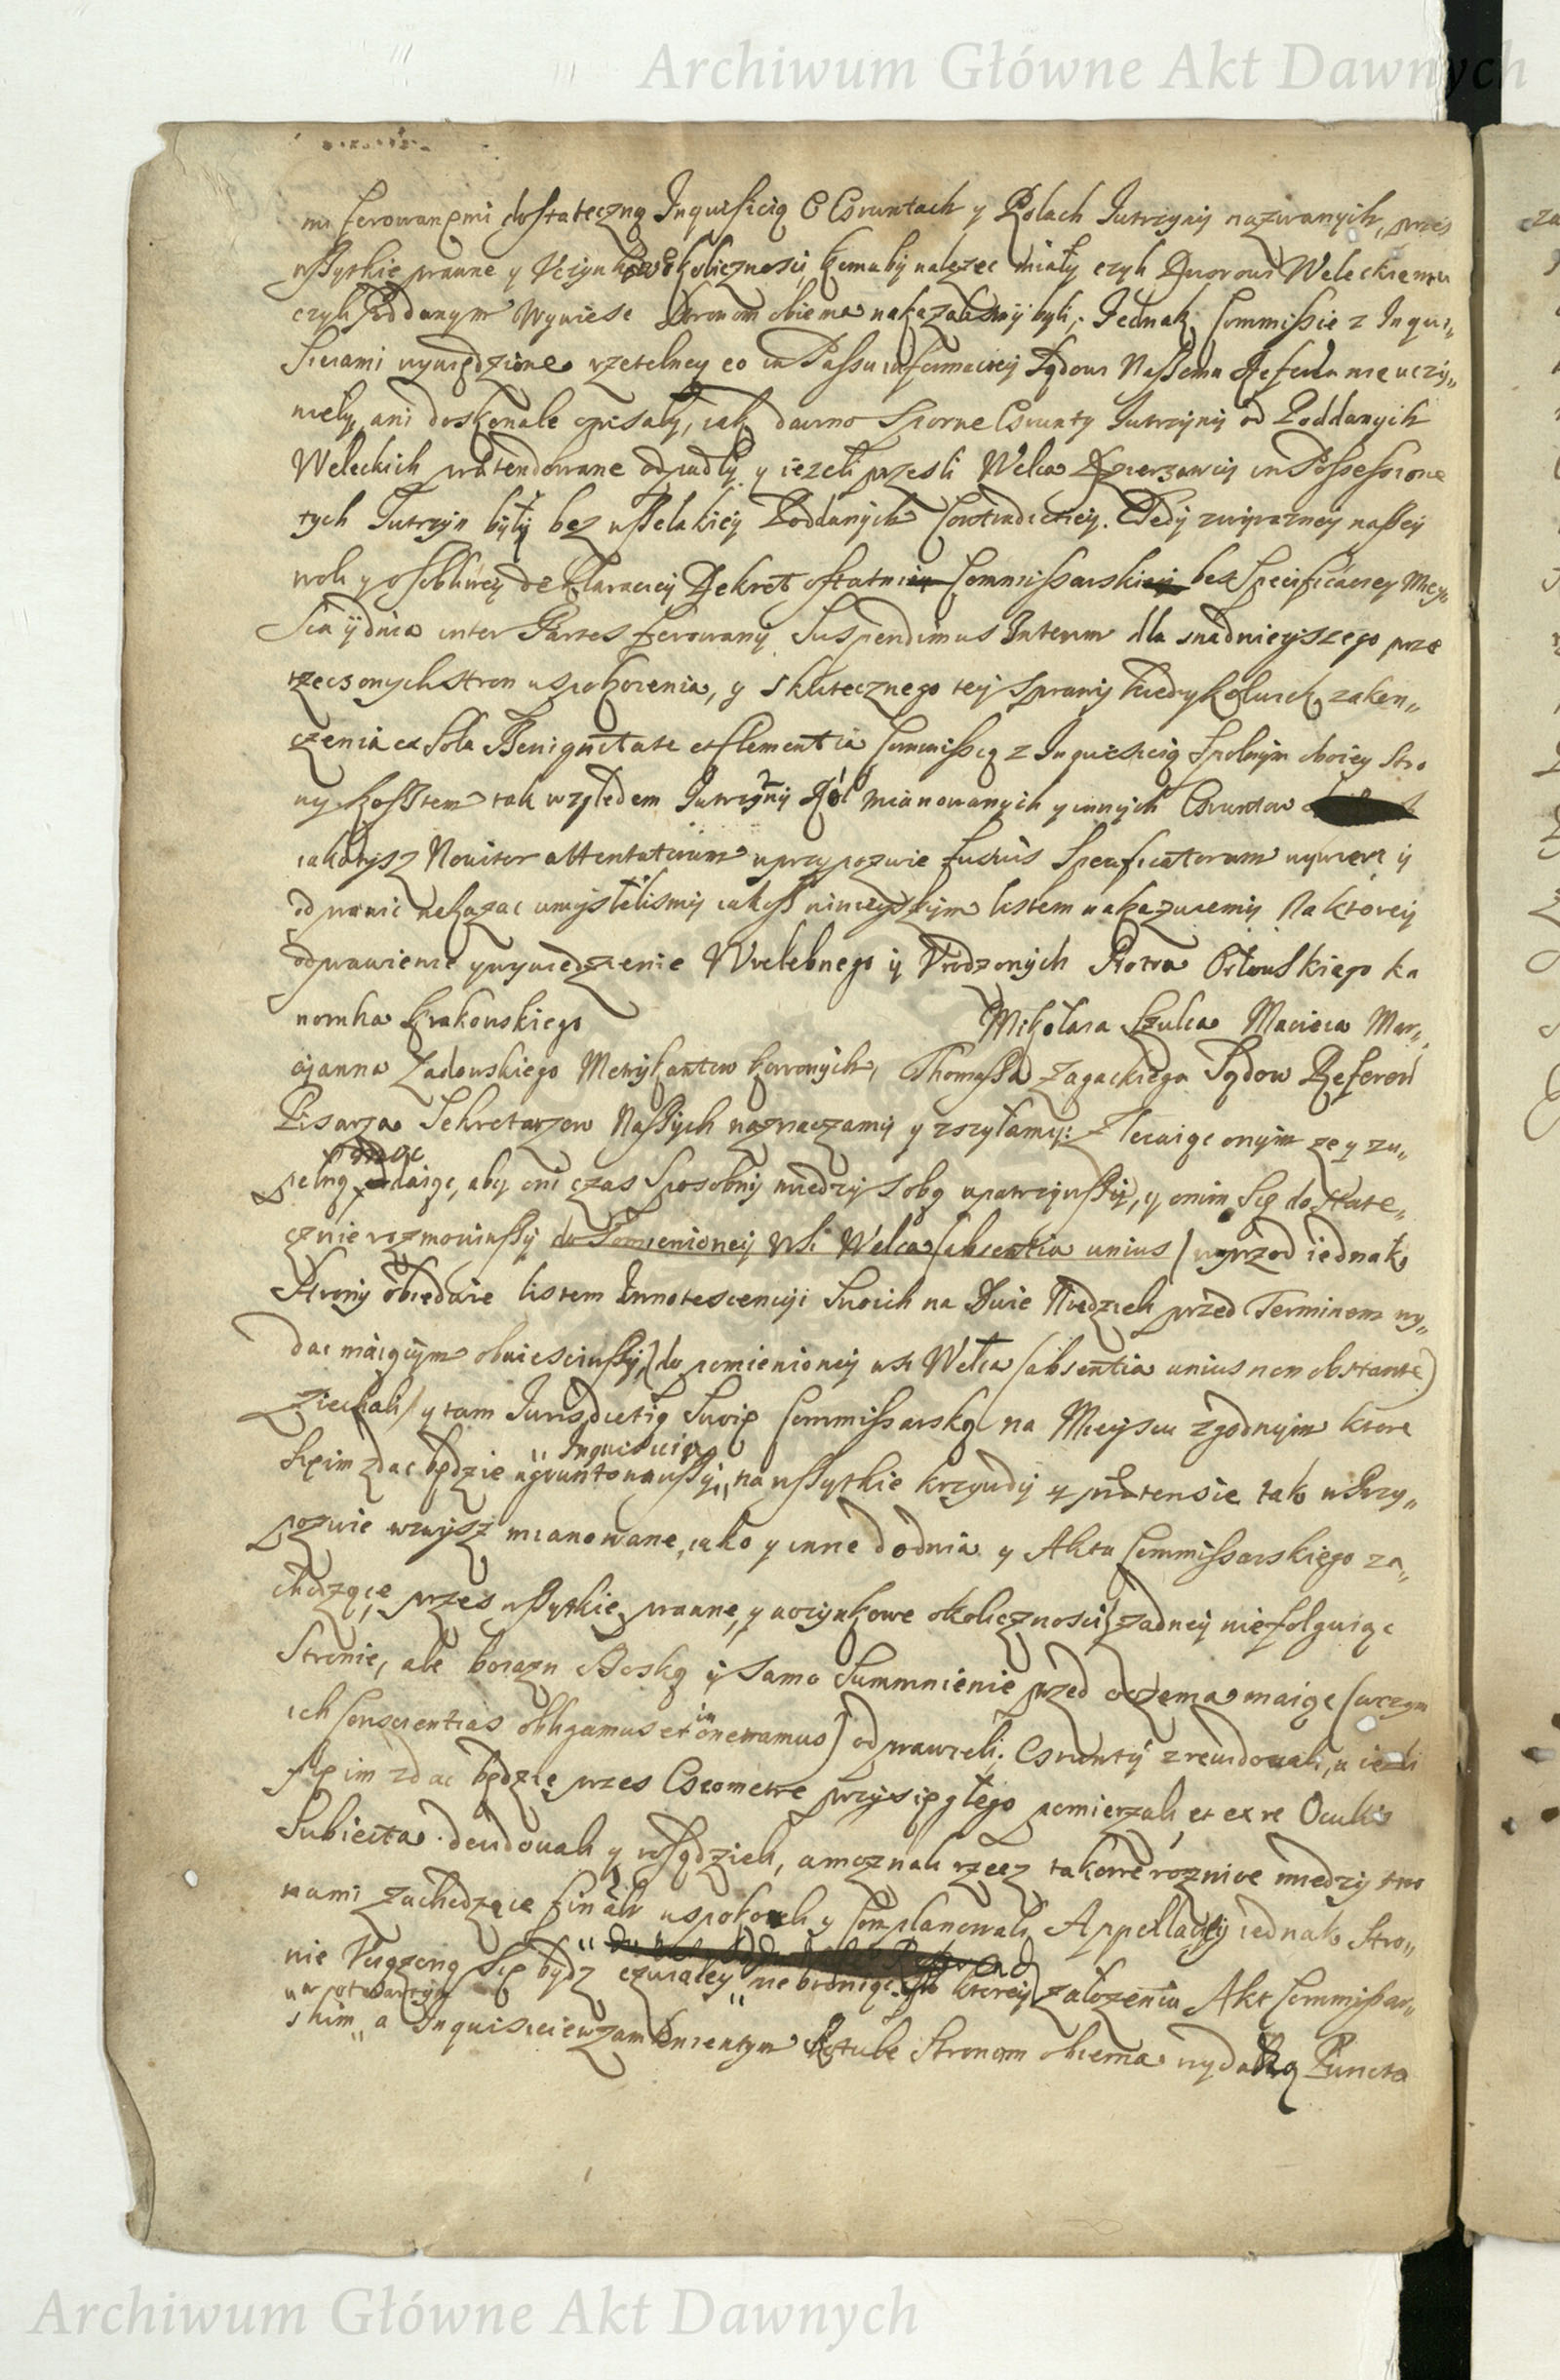 Archiwum Główne Akt Dawnych
mi ferowanemi dostateczną Inquisicią O Gruntach y Rolach Jutrzyny nazwanych, przez
wszytkie prawne y Uczynkowe okolicznosci, komuby nalezec miały czyli Dworowi Weleckiemu
czyli Poddanym Wywiesc Stronom obiema nakazalismy byli; Jednak Commissie z Inqui„
siciami wywiedzione rzetelney eo in Passu informaciey Sądowi Naszemu Referen nie uczy„
niely, ani doskonale opisały, iak dawno sporne Grunty Jutrzyny od Poddanych
Weleckich prætendowane odpadły y iezeli przesli Welca Dzierzawcy in Possessione
tych Jutrzyn były bez wszelakiey Poddanych Contradictiey. Tedy zwyrazney naszey
woli y osobliwey deklaraciey Dekret ostatni Commissarski bez Specificaciey Miey„
sca y dnia inter Partes ferowany Suspendimus Interim dla snadnieyszego prze
rzeczonych stron uspokoienia, y skutecznego tey sprawy kiedykolwiek zakon„
czenia ex sola Benignitate et Clementia Commissią z Inquisicią spolnym oboiey stro
ny kosztem tak względem Jutrzyny Ról mianowanych y innych Gruntow
iako tysz Noviter attentatorum w przypozwie fusius Specificatorum wywiesc y
odprawic nakazac umyslilismy iakosz ninieyszym listem nakazuiemy. Na ktorey
odprawienie y wywiedzenie Wielebnego y Urodzonych Piotra Orłowskiego ka
nonika Krakowskiego Mikołaia Szulca Macieia Mar„
cyanna Ladowskiego Metrykantow koronnych, Thomasza Zagackiego Sądow Referen
Pisarza Sekretarzow Naszych naznaczamy y zsyłamy: Zlecaiąc onym ze y zu„
pełną moc daiąc, aby oni czas sposobny miedzy sobą upatrzywszy, y onim się dostate„
cznie rozmowiwszy do Pomienioney Wsi Welca (absentia unius) wprzod iednak
Strony obiedwie listem Innotescencyi Swoich na Dwie Niedzieli przed Terminem wy„
dac maiącym obwiesciwszy, do pomienioney wsi Welca (absentia unius non obstante)
Ziechali y tam Jurisdictią Swoię Commissarską na Mieyscu zgodnym ktore
się im zdac będzie ugruntowawszy, „Inquisicią„ na wszytkie krzywdy y prætensie tak w Przy„
pozwie wzwysz mianowane, iako y inne do dnia y Aktu Commissarskiego za„
chodzące przes wszytkie prawne, y uczynkowe okolicznosci zadney nie folguiąc
Stronie, ale boiazn Boską y samo Summnienie przed oczema maiąc (w czym
ich Conscientias obligamus et in oneramus) odprawieli. Grunty zrewidowali, a iezeli
się im zdac będzie przes Geometrę przysięgłego pomierzali et ex re Oculis
Subiecta deudowali y rosądzieli, a moznali rzecz takowe roznice miedzy stro
nami zachodzące finali uspokoieli y Complanowali, Appellaciey iednak Stro„
nie Uciązoną się bydz czuiącey nie broniąc do ktorey załozenia Akt Commissar„
skim „a Inquisiciiey zamknientym Rotule Stronom obiema wydadzą Puncta
Archiwum Główne Akt Dawnych